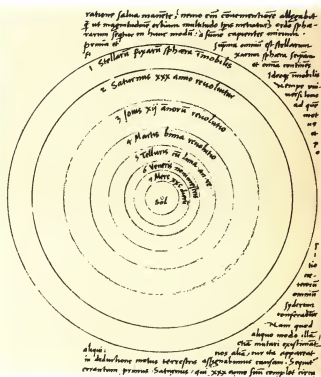 ratione salua manente, nemo em̄ conuenientiore allegabit
q̃ ut magnitudinē orbium multitudo tp̄is metiatur, ordo sphæ-
rarum sequitur in hunc modū: a summo capientes initium.
prima et suprema omniū est stellarum
fixarum sphæra seipsam
et omnia continens
Ideoq̃ immobilis
nempe uni-
uersi locus
ad quē
motus
1 Stellarū fixarum sphæra immobilis
2 Saturnus xxx anno reuoluitur
3 Jouis xij annorū reuolutio
4 Martis bima reuolutio
5 Telluris cū luna an. re.
6 Veneris nonimestris
7 Merc xxc dierū
Sol
tio
cæ-
terorū
omniū
syderum
conferatur
Nam quod
aliquo modo illā
etiā mutari existimāt
aliqui: nos aliā, cur ita appareat
in deductione motus terrestris assignabimus causam. Sequitur
errantium primus Saturnus: qui xxx anno suū complet circu